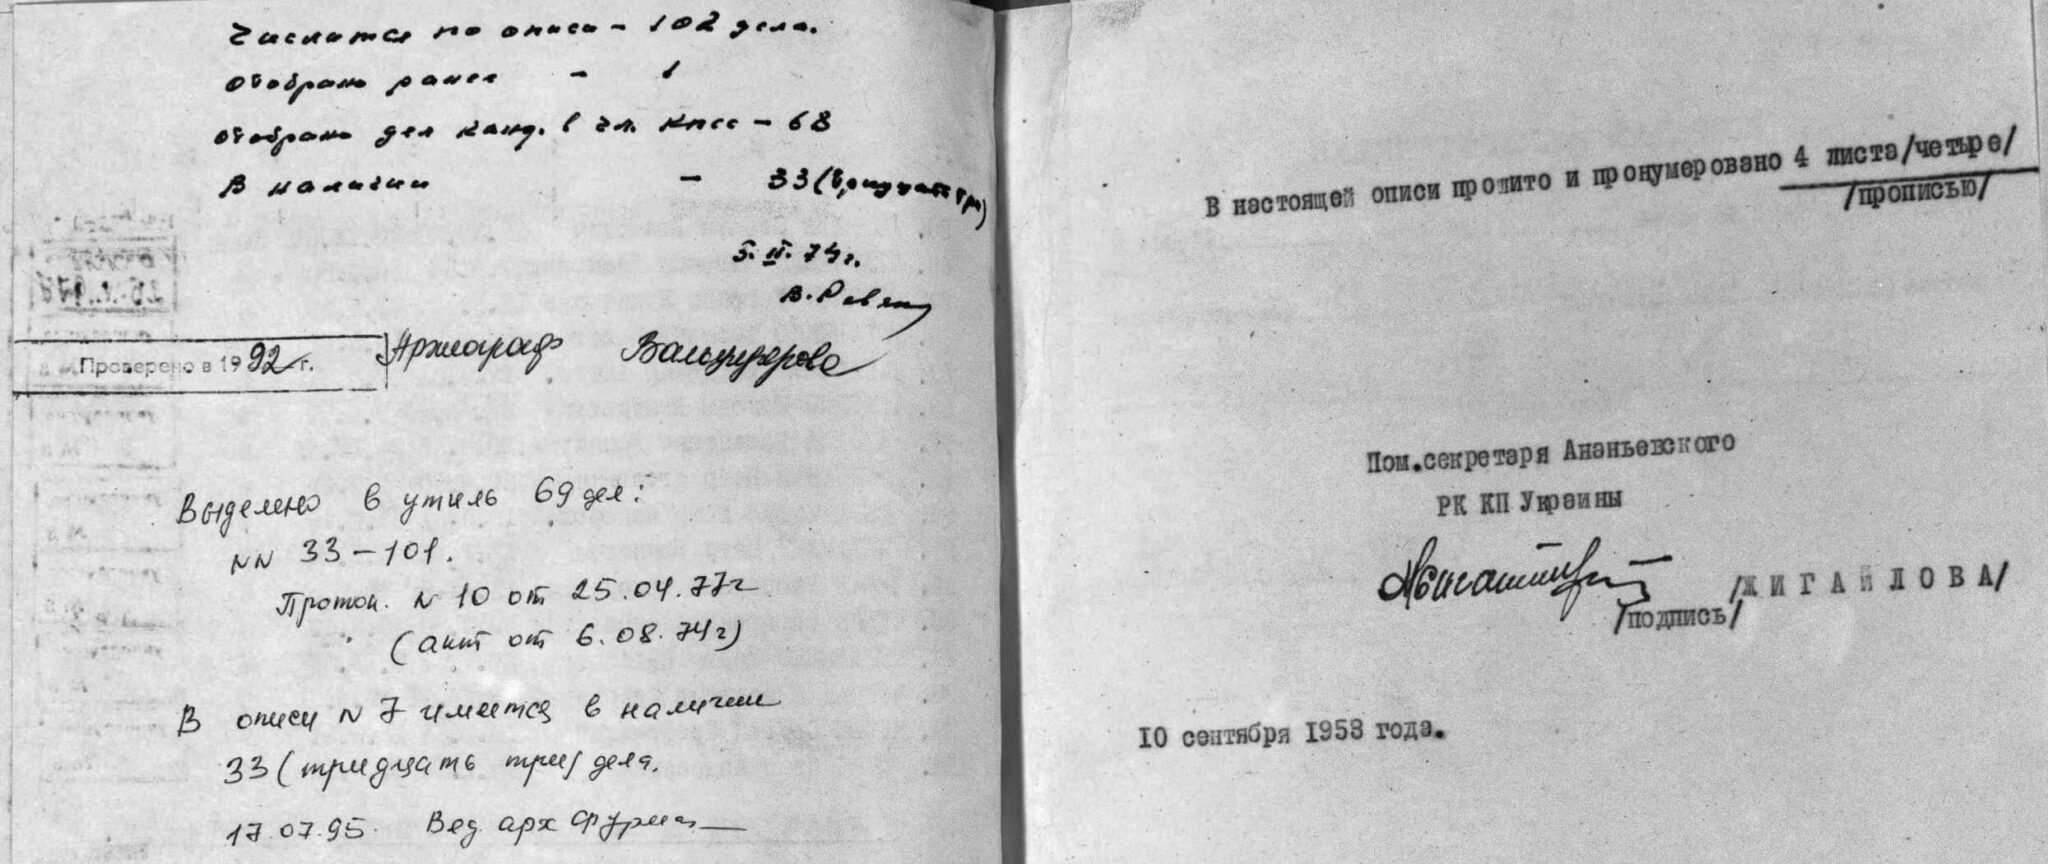 Числится по описи - 102 дела.
Отобрано ранее - 1
Отобрано дел канд. в чл. КПСС - 68
В наличии - 33 (тридцать три)
5.II.74г.
Проверено в 1992 г. Археограф
Выделено в утиль 69 дел:
NN 33-101.
Проток. N 10 от 25.04.77г
(акт от 6.08.74г)
В описи N 7 имеется в наличии
33 (тридцать три) дела.
17.07.95. Вед. арх
В настоящей описи прошито и пронумеровано 4 листа/четыре/
/прописью/
Пом.секретаря Ананьевского
РК КП Украины
/ЖИГАЙЛОВА/
/подпись/
10 сентября 1953 года.